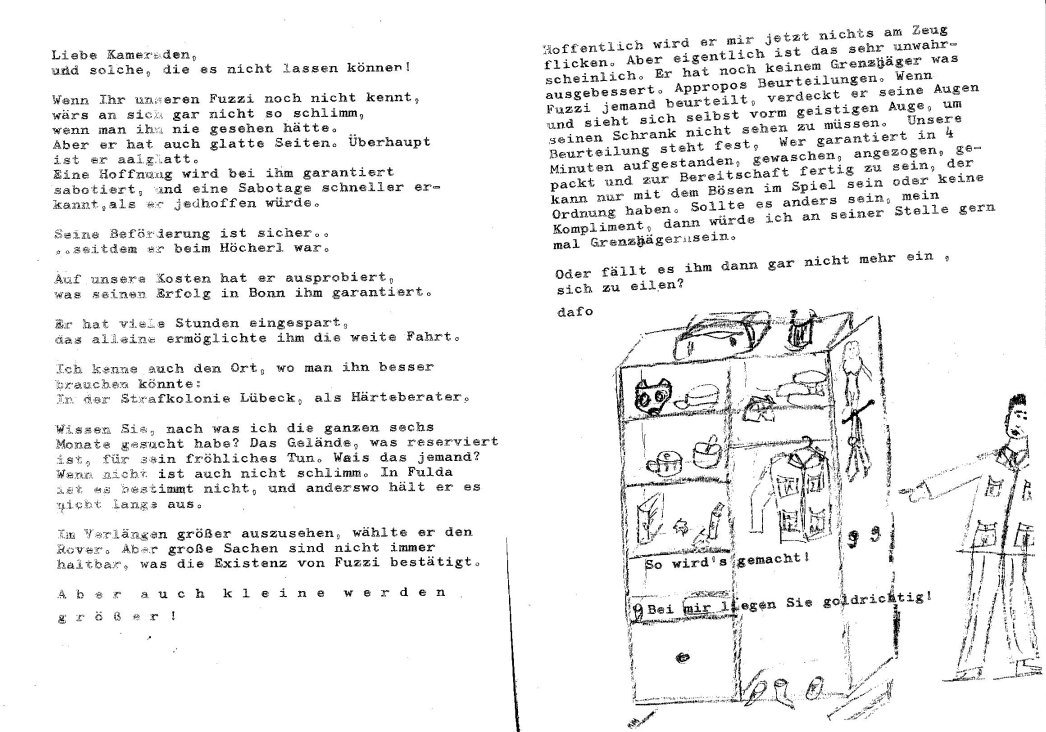 Liebe Kameraden,
und solche, die es nicht lassen können!
Wenn Ihr unseren Fuzzi noch nicht kennt,
wärs an sich gar nicht so schlimm,
wenn man ihn nie gesehen hätte.
Aber er hat auch glatte Seiten. Überhaupt
ist er aalglatt.
Eine Hoffnung wird bei ihm garantiert
sabotiert, und eine Sabotage schneller er-
kannt,als er jedhoffen würde.
Seine Beförderung ist sicher..
..seitdem er beim Höcherl war.
Auf unsere Kosten hat er ausprobiert,
was seinen Erfolg in Bonn ihm garantiert.
Er hat viele Stunden eingespart,
das alleine ermöglichte ihm die weite Fahrt.
Ich kenne auch den Ort, wo man ihn besser
brauchen könnte:
In der Strafkolonie Lübeck, als Härteberater.
Wissen Sie, nach was ich die ganzen sechs
Monate gesucht habe? Das Gelände, was reserviert
ist, für sein fröhliches Tun. Wais das jemand?
Wenn nicht ist auch nicht schlimm. In Fulda
ist es bestimmt nicht, und anderswo hält er es
nicht lange aus.
Im Verlängen größer auszusehen, wählte er den
Rover. Aber große Sachen sind nicht immer
haltbar, was die Existenz von Fuzzi bestätigt.
A b e r  a u c h  k l e i n e  w e r d e n
g r ö ß e r !
Hoffentlich wird er mir jetzt nichts am Zeug
flicken. Aber eigentlich ist das sehr unwahr-
scheinlich. Er hat noch keinem Grenzjäger was
ausgebessert. Appropos Beurteilungen. Wenn
Fuzzi jemand beurteilt, verdeckt er seine Augen
und sieht sich selbst vorm geistigen Auge, um
seinen Schrank nicht sehen zu müssen. Unsere
Beurteilung steht fest, Wer garantiert in 4
Minuten aufgestanden, gewaschen, angezogen, ge-
packt und zur Bereitschaft fertig zu sein, der
kann nur mit dem Bösen im Spiel sein oder keine
Ordnung haben. Sollte es anders sein, mein
Kompliment, dann würde ich an seiner Stelle gern
mal Grenzjäger sein.
Oder fällt es ihm dann gar nicht mehr ein ,
sich zu eilen?
dafo
So wird's gemacht!
Bei mir liegen Sie goldrichtig!